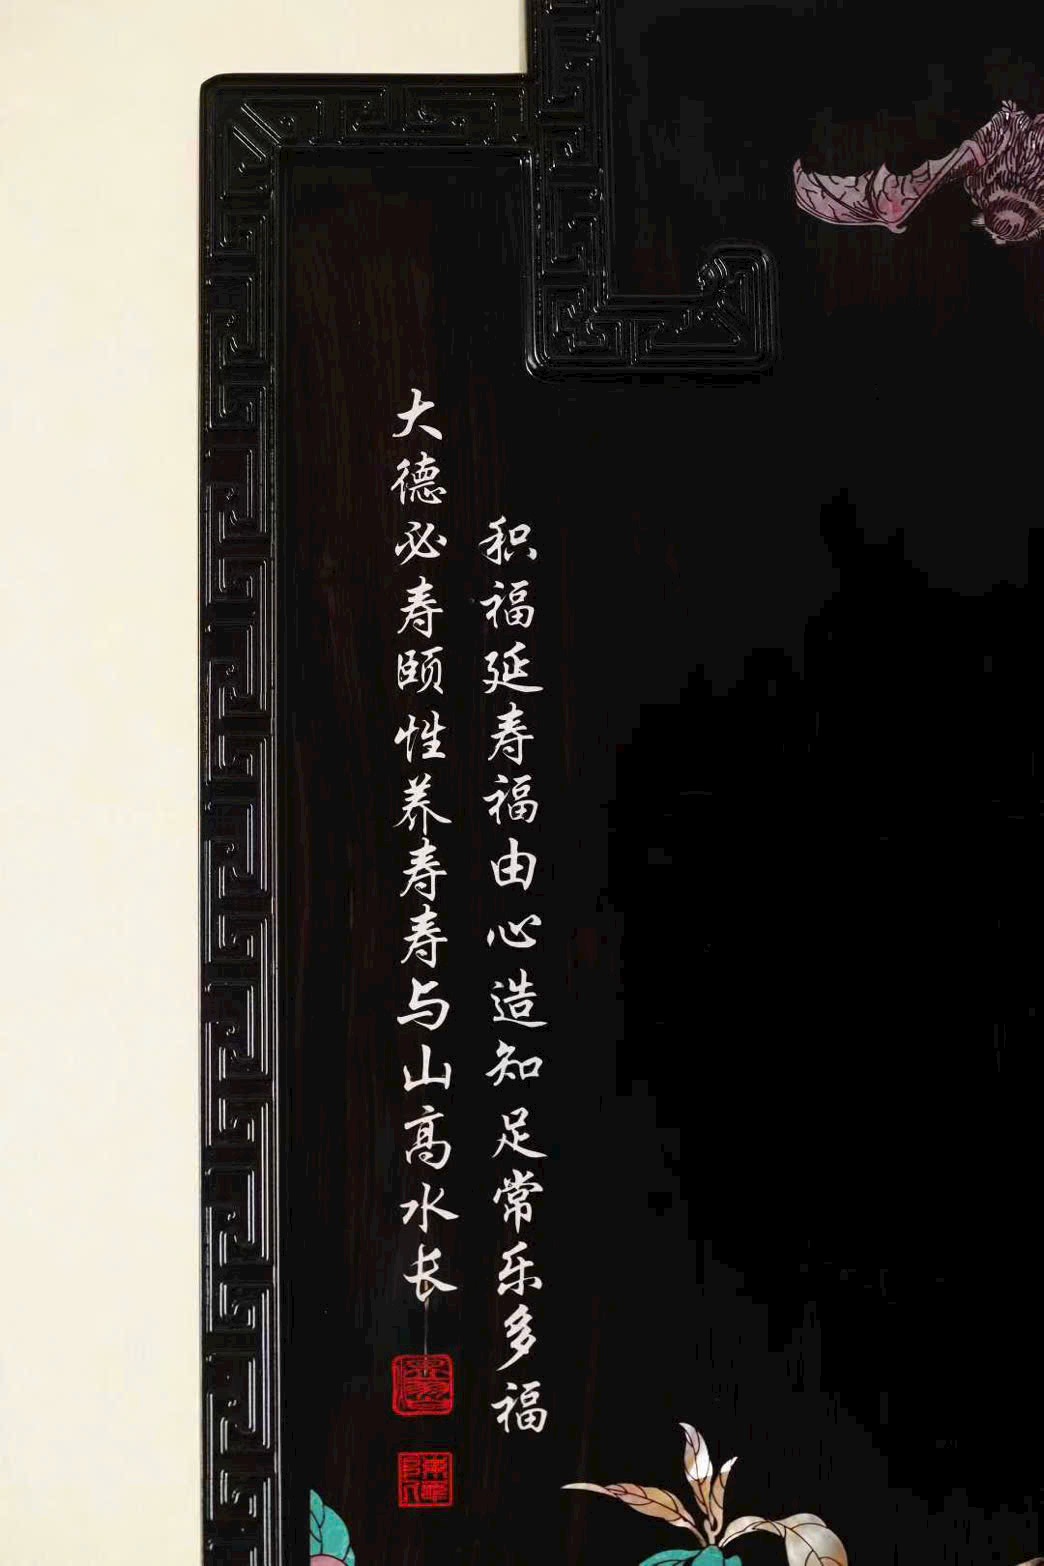 积福延寿福由心造知足常乐多福
大德必寿颐性养寿寿与山高水长